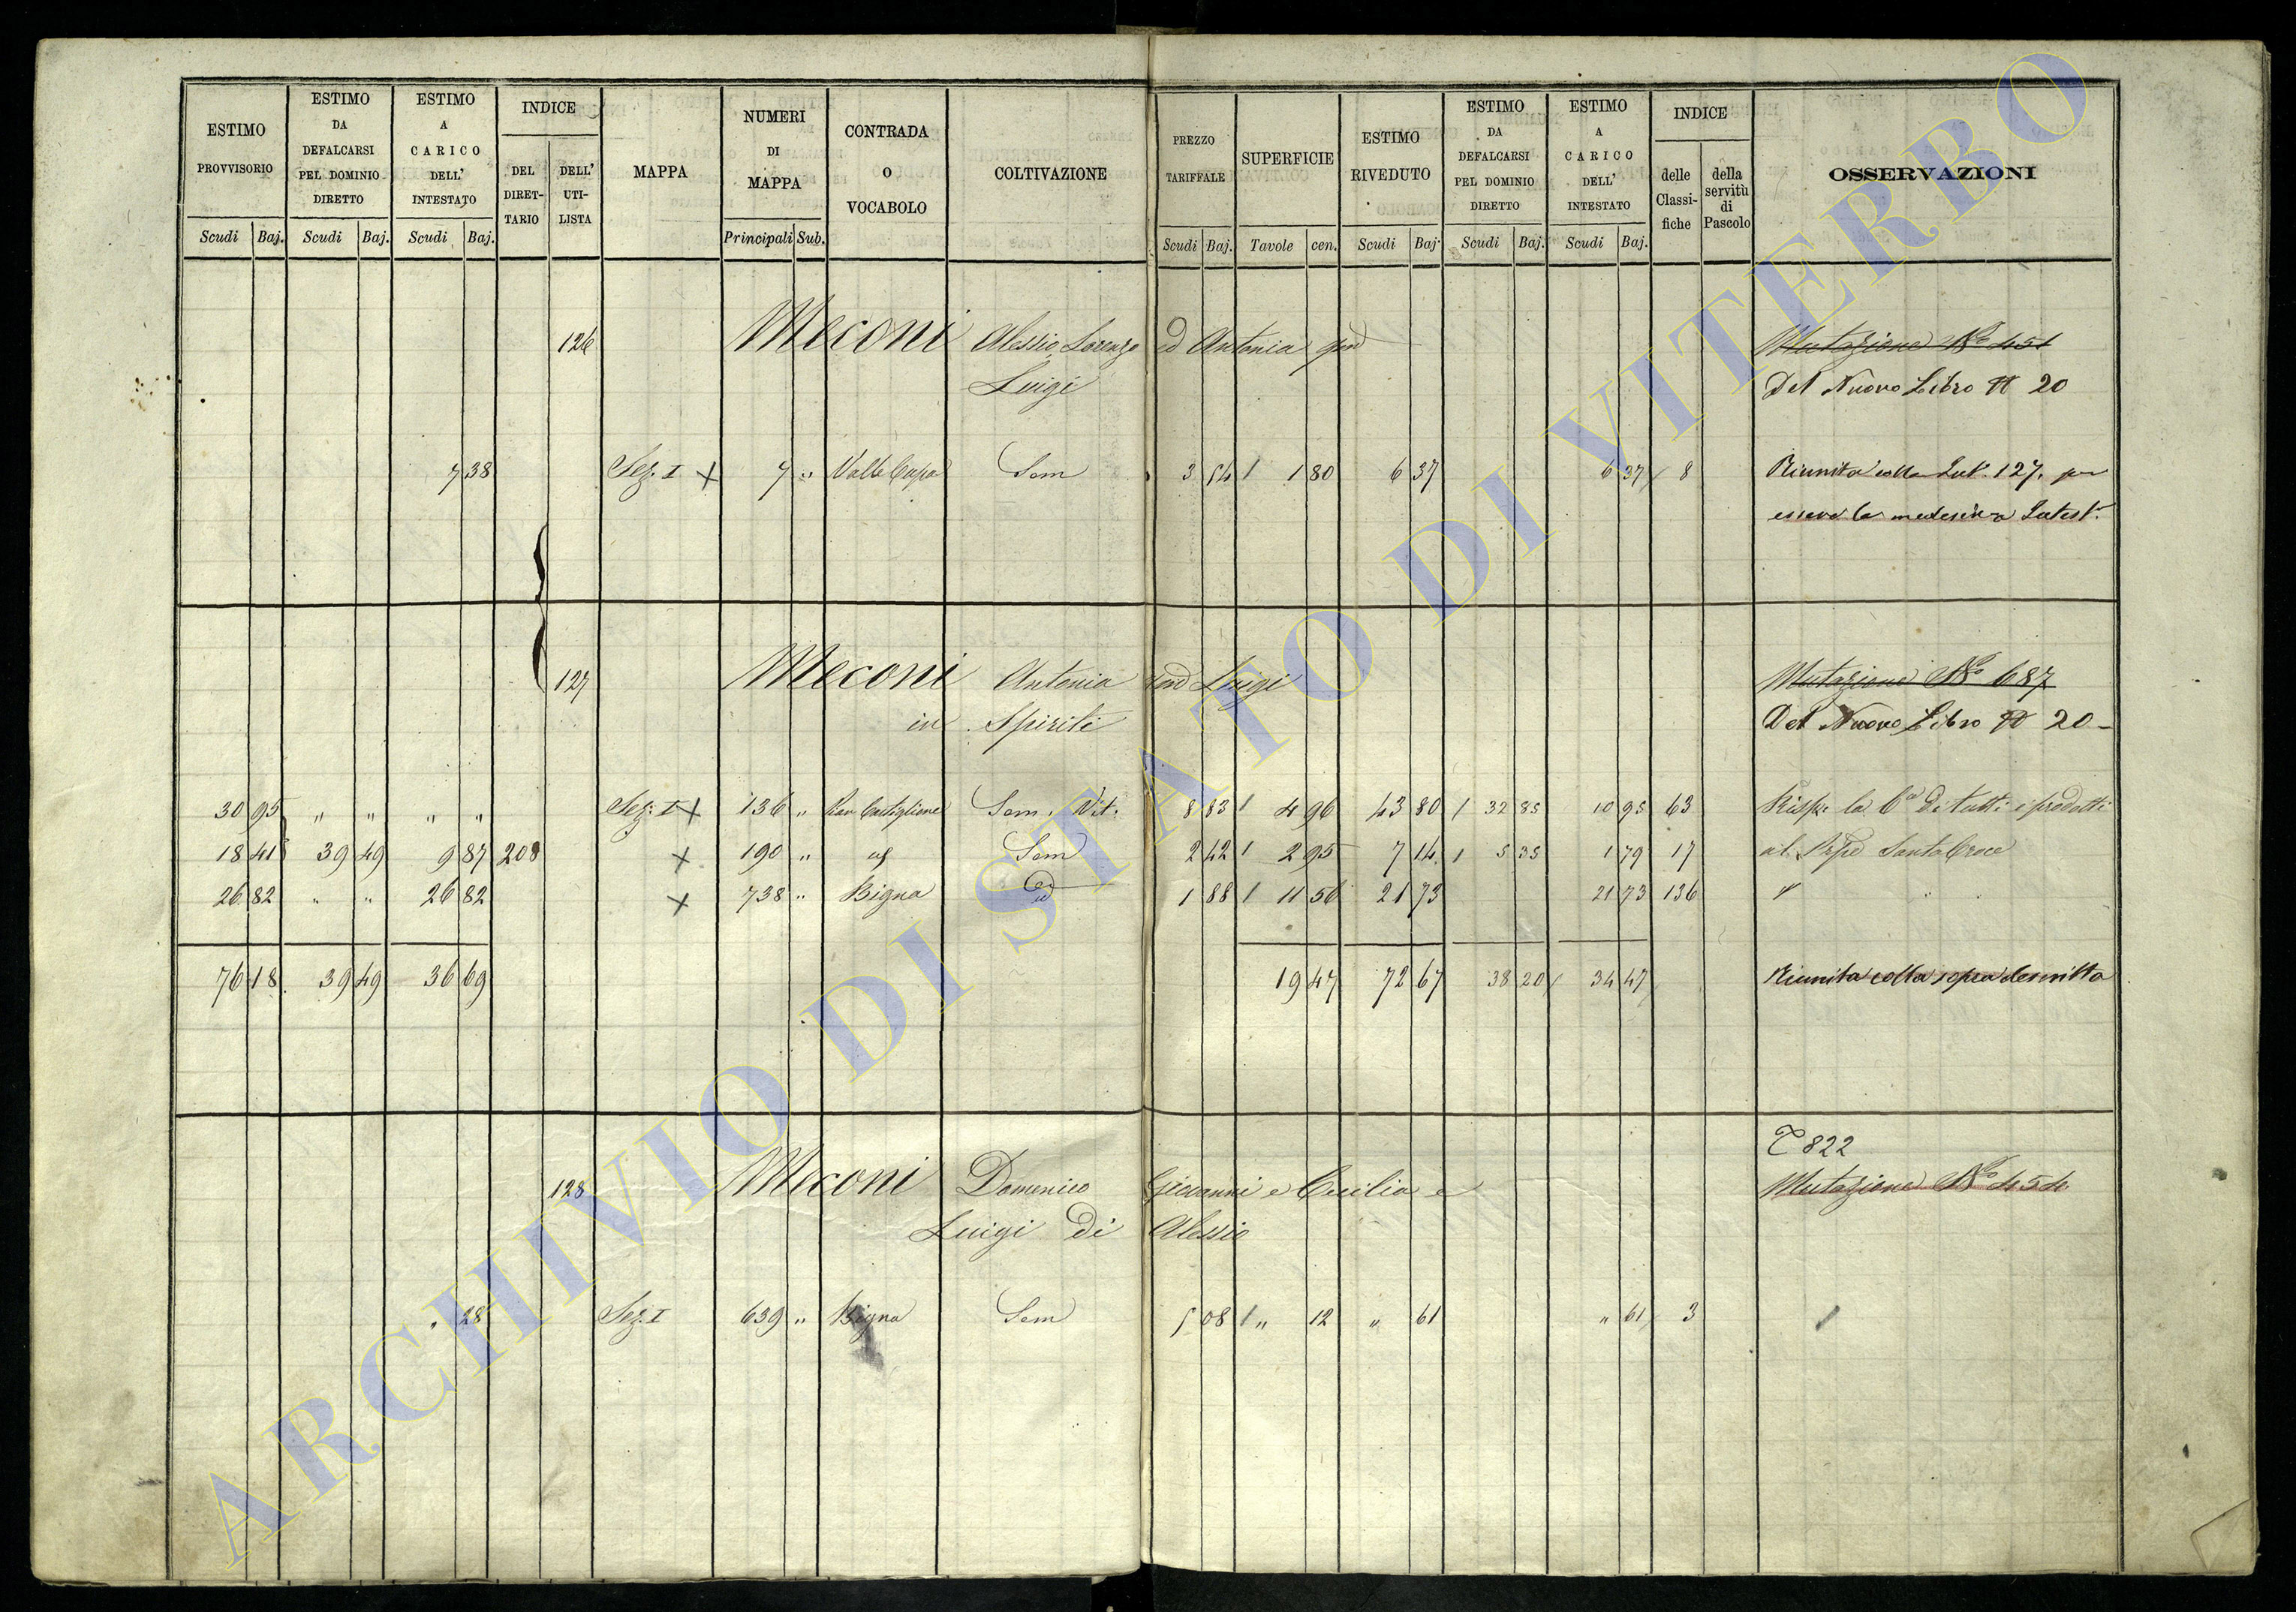 ESTIMO PROVVISORIO
ESTIMO DA DEFALCARSI PEL DOMINIO DIRETTO
ESTIMO A CARICO DELL' INTESTATO
INDICE
DEL DIRETTARIO
DELL' UTILISTA
MAPPA
NUMERI DI MAPPA
CONTRADA O VOCABOLO
COLTIVAZIONE
PREZZO TARIFFALE
SUPERFICIE
ESTIMO RIVEDUTO
ESTIMO DA DEFALCARSI PEL DOMINIO DIRETTO
ESTIMO A CARICO DELL' INTESTATO
INDICE
delle Classifiche
della servitù di Pascolo
OSSERVAZIONI
Scudi Baj. Scudi Baj. Scudi Baj. Principali Sub. Scudi Baj. Tavole cen. Scudi Baj. Scudi Baj. Scudi Baj.
126 Meconi Alessio Lorenzo ed Antonia qm Mutazione No 451
Luigi Del Nuovo Libro 20
7 38 Sez. I x 7 " Valle Cupa Sem 3 54 1 80 6 37 6 37 8 Riunita colla Int. 127. per
essere la medesima Intest.
127 Meconi Antonia qm Luigi Mutazione No 687
in Spiriti Del Nuovo Libro 20
30 95 " " " " Sez. I x 136 " Pian Castiglione Sem. Vit. 8 83 4 96 43 80 32 85 10 95 63 Risp. la 6a di tutti i prodotti
18 41 39 49 9 87 208 x 190 " Sem 2 42 2 95 7 14 5 35 1 79 17 al Santa Croce
26 82 " " 26 82 x 738 " Bigna id 1 88 11 56 21 73 21 73 136 "
76 18 39 49 36 69 19 47 72 67 38 20 34 47 Riunita colla sopra descritta
822
128 Meconi Domenico Giovanni e Cecilia e Mutazione No 454
Luigi di Alessio
" 28 Sez. I 639 " Bigna Sem 5 08 " 12 " 61 " 61 3
ARCHIVIO DI STATO DI VITERBO